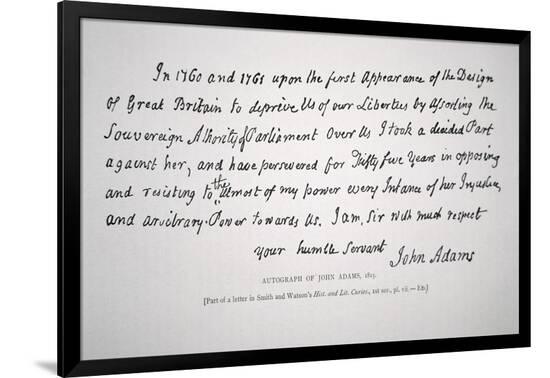 In 1760 and 1761 upon the first Appearance of the Design
of Great Britain to deprive Us of our Liberties by Asserting the
Souvereign Athority of Parliament Over Us I took a decided Part
against her, and have persevered for Fifty five Years in opposing
and resisting to the Utmost of my power every Instance of her Injustice,
and arbitrary Power towards Us. I am, Sir with much respect
your humble Servant John Adams
AUTOGRAPH OF JOHN ADAMS, 1815.
[Part of a letter in Smith and Watson's Hist. and Lit. Curios., 1st ser., pl. vii. — ED.]